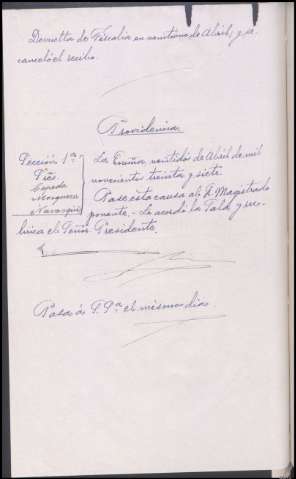 Devuelta de Fiscalía en veintiuno de Abril, y se
canceló el recibo.
Providencia
Sección 1ª
Sres.
Cepeda
Mosquera
La Coruña veintidos de Abril de mil
novecientos treinta y siete.
Pase esta causa al Sr. Magistrado
ponente. Lo acordó la Sala y ru-
brica el Señor Presidente.
Pasa á S. Sª el mismo dia.